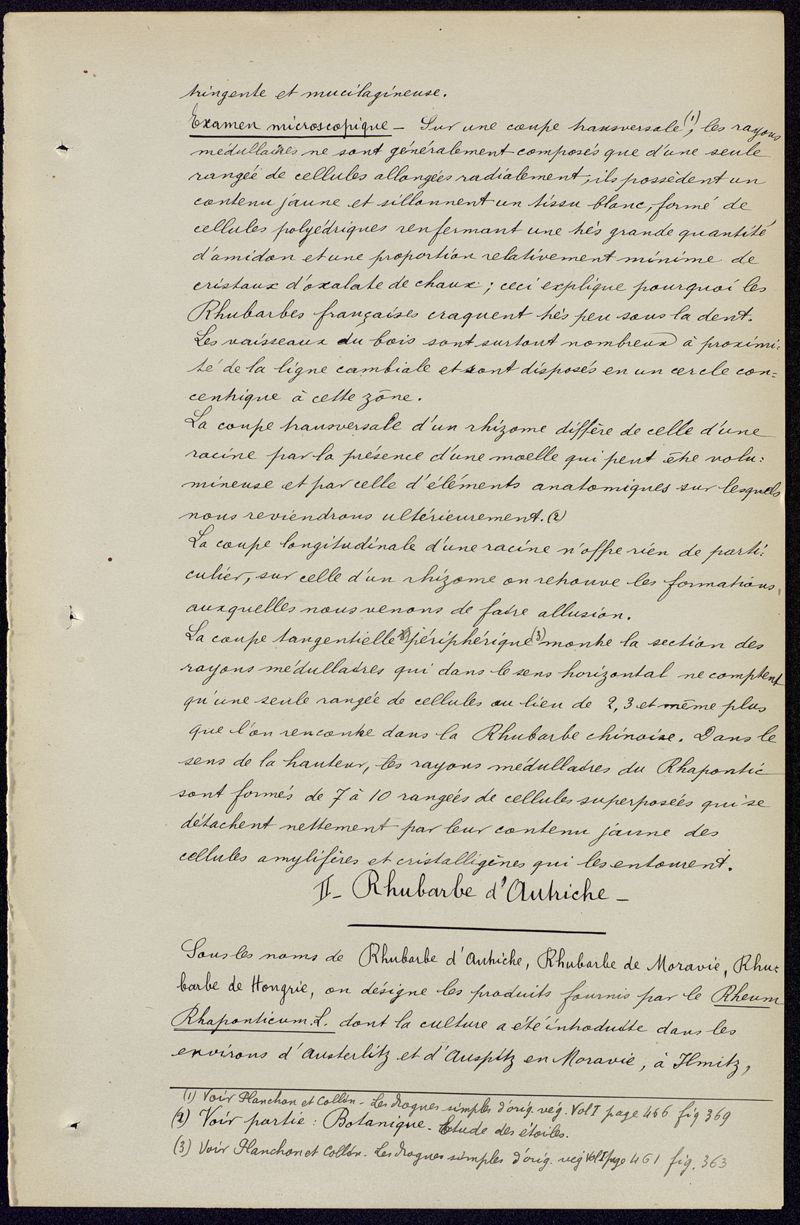 tringente et mucilagineuse.
Examen microscopique - Sur une coupe transversale (1), les rayons
médullaires ne sont généralement composés que d'une seule
rangée de cellules allongées radialement; ils possèdent un
contenu jaune et sillonnent un tissu blanc, formé de
cellules polyédriques renfermant une très grande quantité
d'amidon et une proportion relativement minime de
cristaux d'oxalate de chaux; ceci explique pourquoi les
Rhubarbes françaises craquent très peu sous la dent.
Les vaisseaux du bois sont surtout nombreux à proximi-
té de la ligne cambiale et sont disposés en un cercle con=
centrique à cette zône.
La coupe transversale d'un rhizome diffère de celle d'une
racine par la présence d'une moelle qui peut être volu:
mineuse et par celle d'éléments anatomiques sur lesquels
nous reviendrons ultérieurement. (2)
La coupe longitudinale d'une racine n'offre rien de parti:
culier, sur celle d'un rhizome on retrouve les formations
auxquelles nous venons de faire allusion.
La coupe tangentielle périphérique (3) montre la section des
rayons médullaires qui dans le sens horizontal ne comptent
qu'une seule rangée de cellules au lieu de 2, 3 et même plus
que l'on rencontre dans la Rhubarbe chinoise. Dans le
sens de la hauteur, les rayons médullaires du Rhapontic
sont formés de 7 à 10 rangées de cellules superposées qui se
détachent nettement par leur contenu jaune des
cellules amylifères et cristalligènes qui les entourent.
II - Rhubarbe d'Autriche -
Sous les noms de Rhubarbe d'Autriche, Rhubarbe de Moravie, Rhu-
barbe de Hongrie, on désigne les produits fournis par le Rheum
Rhaponticum. L. dont la culture a été introduite dans les
environs d'Austerlitz et d'Auspitz en Moravie, à Ilmitz,
(1) Voir Planchon et Collin - Les drogues simples d'orig. vég. Vol I page 466 fig 369
(2) Voir partie : Botanique - Etude des étoiles.
(3) Voir Planchon et Collin - Les drogues simples d'orig. veg Vol I page 461 fig. 363